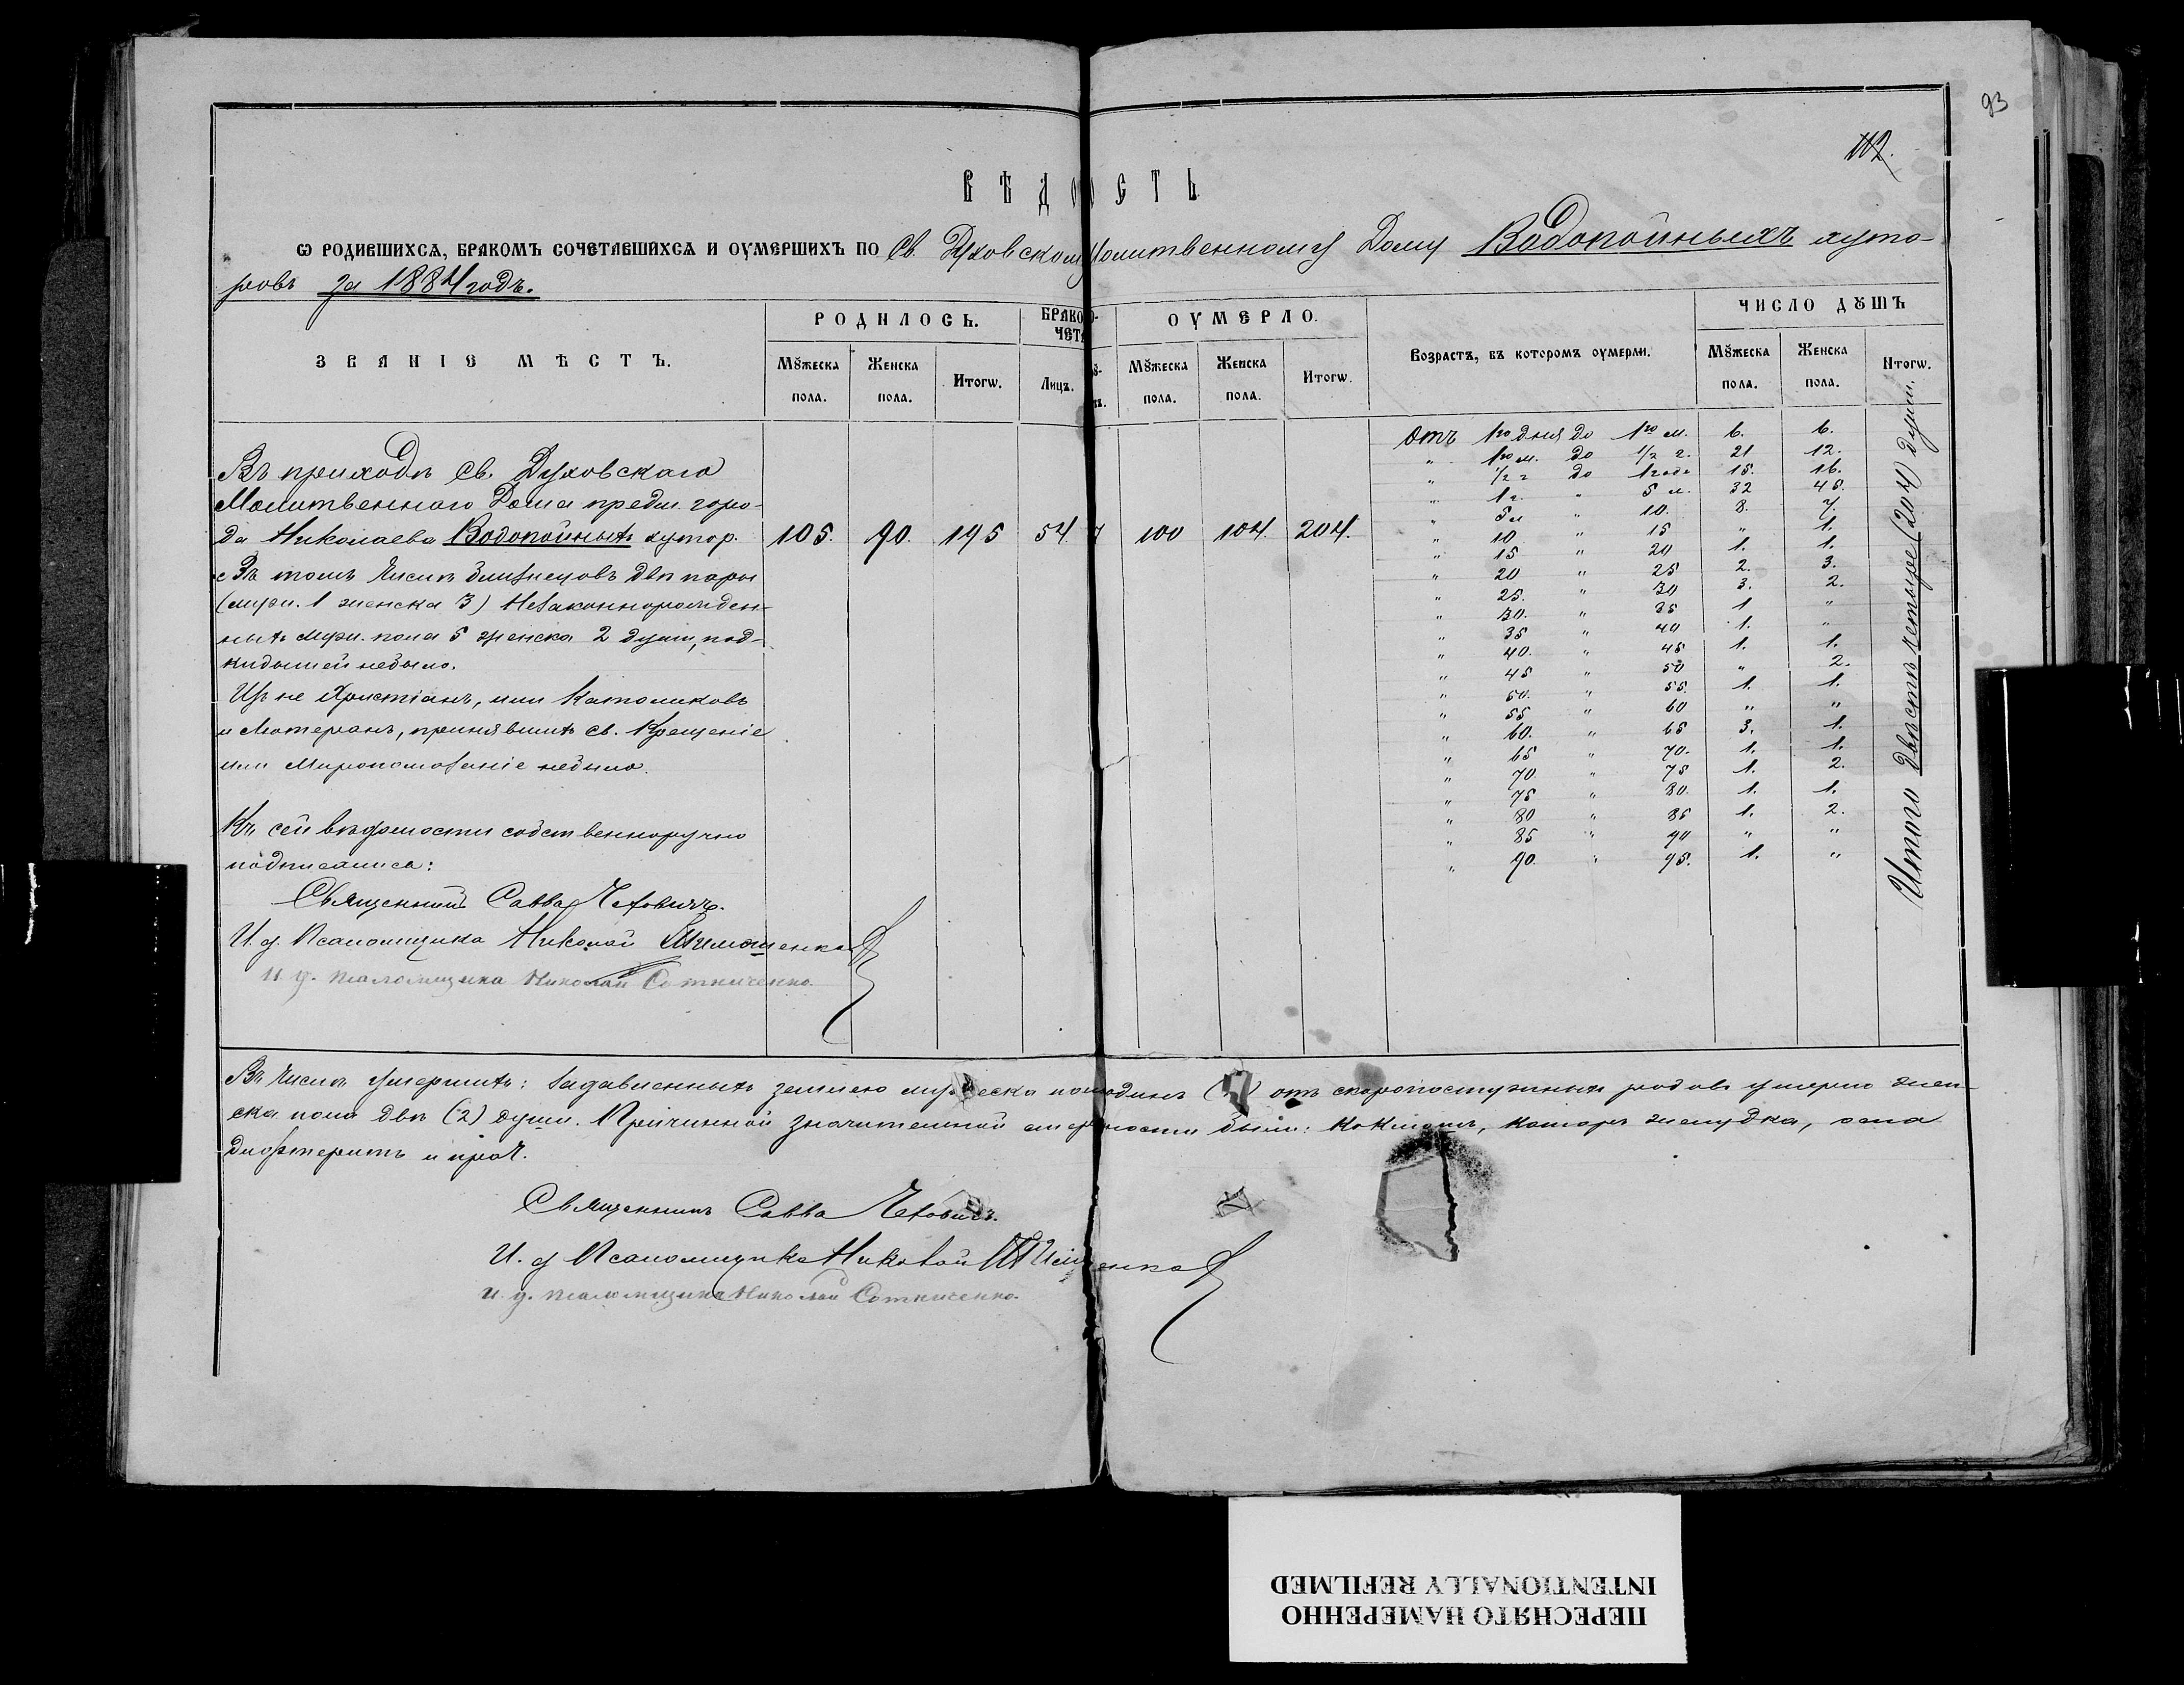 93
112.
ВѢДОМОСТЬ
Ѡ РОДИВШИХСѦ, БРАКОМЪ СОЧЕТАВШИХСѦ И ОУМЕРШИХЪ ПО Св. Духовскому Молитвенному Дому Водопойныхъ хуто-
ровъ за 1884 годъ.
ЗВАНІЕ МѢСТЪ. РОДИЛОСЬ. БРАКО ЧЕТА ОУМЕРЛО. Возрастъ, въ которомъ оумерли. ЧИСЛО ДꙊШЪ
Мꙋжеска пола. Женска пола. Итогѡ. Лицъ. Мꙋжеска пола. Женска пола. Итогѡ. Мꙋжеска пола. Женска пола. Итогѡ.
Въ приходѣ Св. Духовскаго
Молитвеннаго Дома предм. горо-
да Николаева Водопойныхъ хутор. 105. 90. 195 54. 7 100 104. 204.
Въ томъ числѣ близнецовъ двѣ пары
(муж. 1 женска 3) Незаконнорожден-
ныхъ муж. пола 5 женска 2 души, под-
кидышей небыло.
Изъ не Христіанъ, или Католиковъ
и Лютеранъ, принявшихъ Св. Крещеніе
или Миропомазаніе небыло.
Къ сей вѣдомости собственноручно
подписались:
Священникъ Савва Четовичъ.
И. д. Псаломщика Николай Тимошенко
И. д. псаломщика Николай Сотниченко.
Отъ 1го дня до 1го м. 6. 6.
" 1го м. до 1/2 г. 21 12.
" 1/2 г до 1 года 15. 16.
" 1 г. " 5 л. 32 45.
" 5 л " 10. 8. 7.
" 10 " 15 " 1.
" 15 " 20 1. 1.
" 20 " 25 2. 3.
" 25. " 30 3. 2.
" 30. " 35 1 "
" 35 " 40 1. "
" 40. " 45 1. 1.
" 45 " 50 " 2.
" 50. " 55. 1. 1.
" 55 " 60 " "
" 60. " 65 3. 1.
" 65 " 70. 1. 1.
" 70. " 75 1. 2.
" 75 " 80. 1. 1.
" 80 " 85 1. 2.
" 85 " 90 " "
" 90. " 95. 1. "
Итого двѣсти четыре (204) души.
Въ числѣ умершихъ: задавленныхъ землею мужеска пола одинъ отъ скоропостижныхъ родовъ умерло жен-
ска пола двѣ (2) души. Причинной значительной смертности были: коклюшъ, катаръ желудка, оспа
дифтеритъ и проч.
Священникъ Савва Четовичъ.
И. д Псаломщика Николай Тимошенко
И. д. псаломщика Николай Сотниченко.
ПЕРЕСНЯТО НАМЕРЕННО
INTENTIONALLY REFILMED